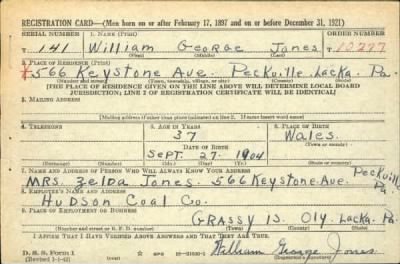 REGISTRATION CARD—(Men born on or after February 17, 1897 and on or before December 31, 1921)
SERIAL NUMBER 1. NAME (Print) ORDER NUMBER
T 141 William George Jones T 10277
(First) (Middle) (Last)
2. PLACE OF RESIDENCE (Print)
*566 Keystone Ave. Peckville, Lacka. Pa.
(Number and street) (Town, township, village, or city) (County) (State)
[THE PLACE OF RESIDENCE GIVEN ON THE LINE ABOVE WILL DETERMINE LOCAL BOARD
JURISDICTION; LINE 2 OF REGISTRATION CERTIFICATE WILL BE IDENTICAL]
3. MAILING ADDRESS
[Mailing address if other than place indicated on line 2. If same insert word same]
4. TELEPHONE 5. AGE IN YEARS 6. PLACE OF BIRTH
37 Wales.
DATE OF BIRTH
Sept. 27. 1904
(Exchange) (Number) (Mo.) (Day) (Yr.) (State or country)
7. NAME AND ADDRESS OF PERSON WHO WILL ALWAYS KNOW YOUR ADDRESS Peckville
Mrs. Zelda Jones. 566 Keystone Ave. Pa.
8. EMPLOYER'S NAME AND ADDRESS
Hudson Coal Co.
9. PLACE OF EMPLOYMENT OR BUSINESS
Grassy Is. Oly. Lacka. Pa.
(Number and street or R. F. D. number) (Town) (County) (State)
I AFFIRM THAT I HAVE VERIFIED ABOVE ANSWERS AND THAT THEY ARE TRUE.
D. S. S. Form 1
(Revised 1-1-42) William George Jones
(Registrant's signature)